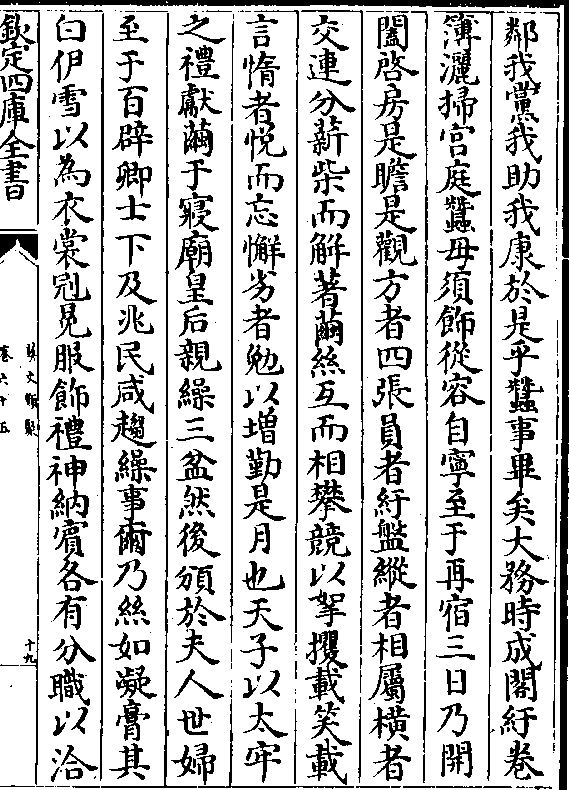 鄰我黨我助我康於是乎蠶事畢矣大務時成閣紆卷
簿灑掃宫庭蠶母須飾從容自寧至于再宿三日乃開
闔啓房是瞻是觀方者四張員者紆盤縱者相屬横者
交連分薪柴而解著繭絲互而相攀競以拏攫載笑載
言惰者悦而忘懈劣者勉以増勤是月也天子以太牢
之禮獻繭于寢廟皇后親繰三盆然後頒於夫人世婦
至于百辟卿士下及兆民咸趨繰事爾乃絲如凝膏其
白伊雪以為衣裳冠冕服飾禮神納賓各有分職以洽
欽定四庫全書
卷六十五
十九